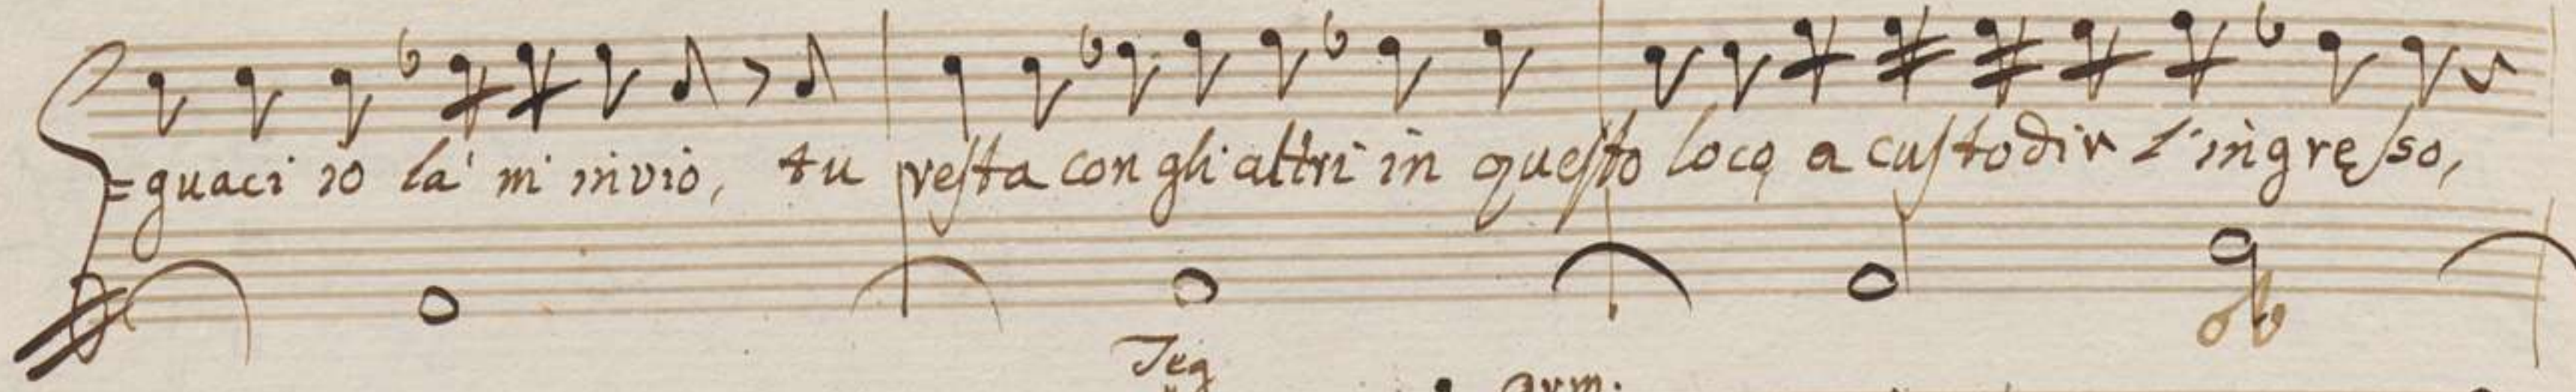 =guaci io là m'invio, tu resta con gli altri in questo loco a custodir l'ingresso,
Seg
arm.